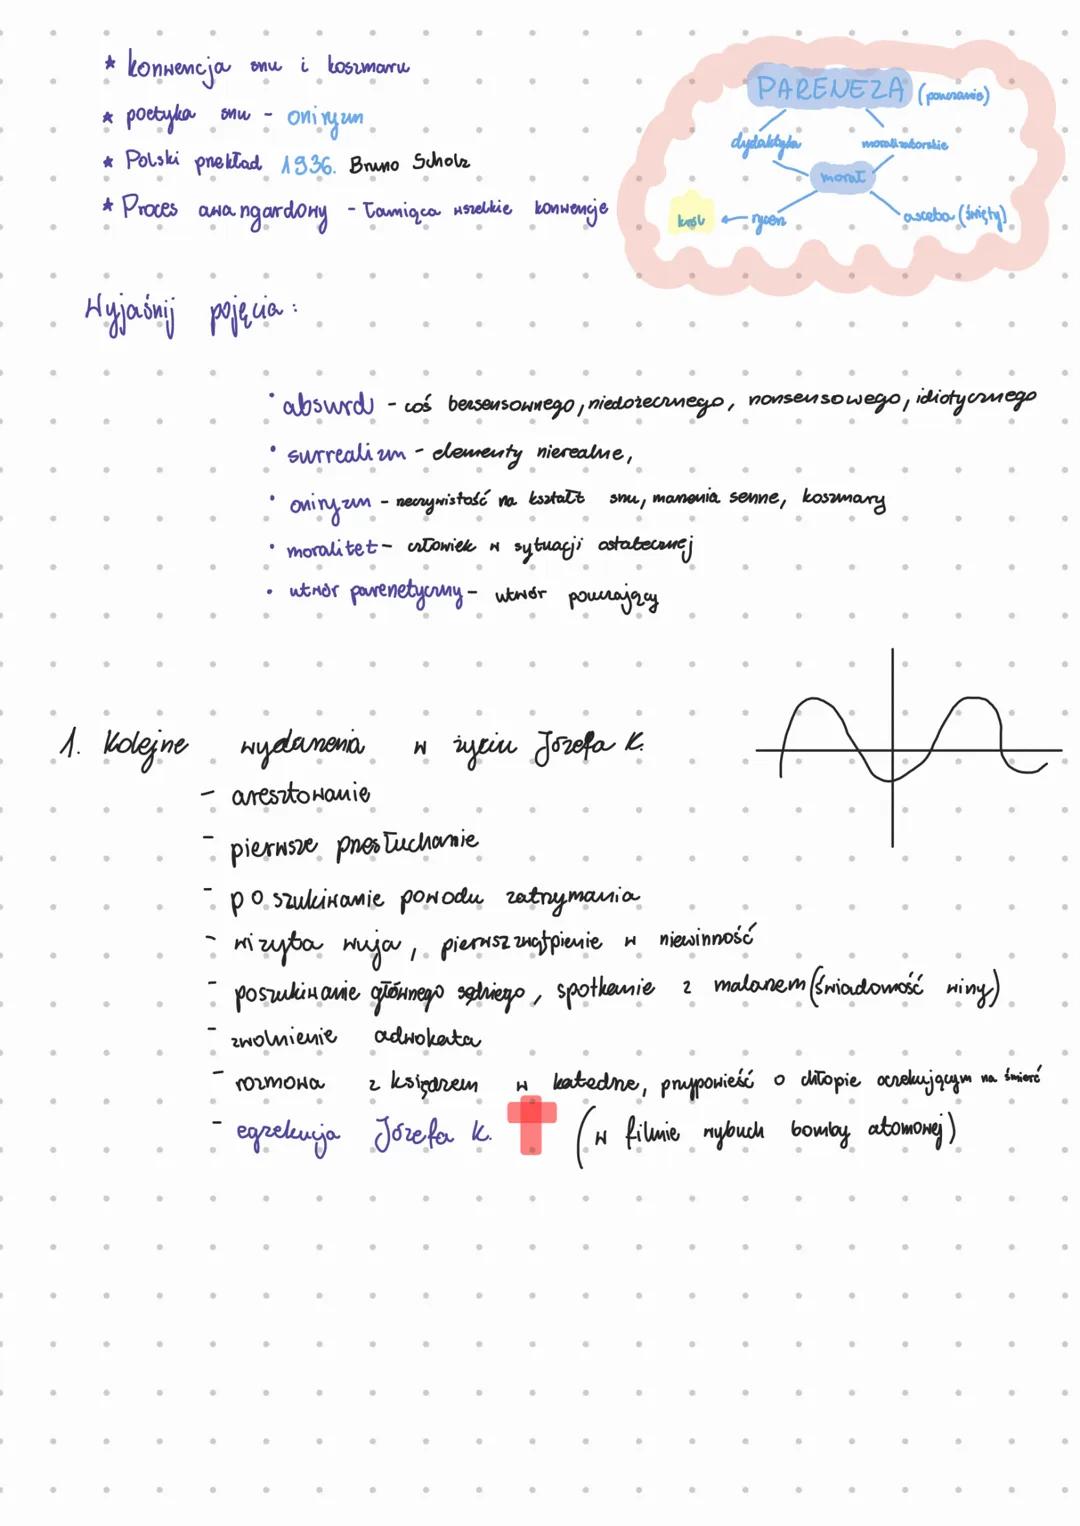 * konwencja snu i koszmaru
* poetyka snu - oniryzm
* Polski przekład 1936. Bruno Scholz
* Proces awangardowy - łamiąca wszelkie konwencje
PARENEZA (pouczanie)
dydaktyka moralizatorskie
morał
król ← rycerz asceta (święty)
Wyjaśnij pojęcia:
• absurd - coś bezsensownego, niedorzecznego, nonsensowego, idiotycznego
• surrealizm - elementy nierealne,
• oniryzm - rzeczywistość na kształt snu, marzenia senne, koszmary
• moralitet - człowiek w sytuacji ostatecznej
• utwór parenetyczny - utwór pouczający
1. Kolejne wydarzenia w życiu Józefa K.
- aresztowanie
- pierwsze przesłuchanie
- poszukiwanie powodu zatrzymania
- wizyta wuja, pierwsz zwątpienie w niewinność
- poszukiwanie głównego sędziego, spotkanie z malarzem (świadomość winy)
- zwolnienie adwokata
- rozmowa z księdzem w katedrze, przypowieść o chłopie oczekującym na śmierć
- egzekucja Józefa K. (w filmie wybuch bomby atomowej)